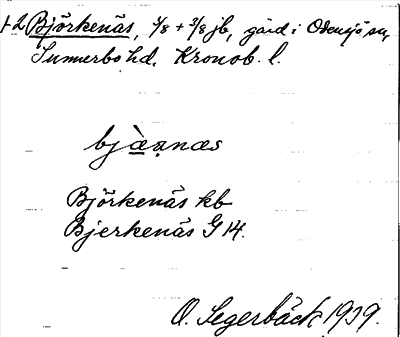 1-2 Björkenäs, 4/8 + 3/8 jb, gård i Odensjö sn,
Sunnerbo hd. Kronob. l.
bjæ̀ṇnæs
Björkenäs kb
Bjerkenäs G 14.
O. Segerbäck 1939.